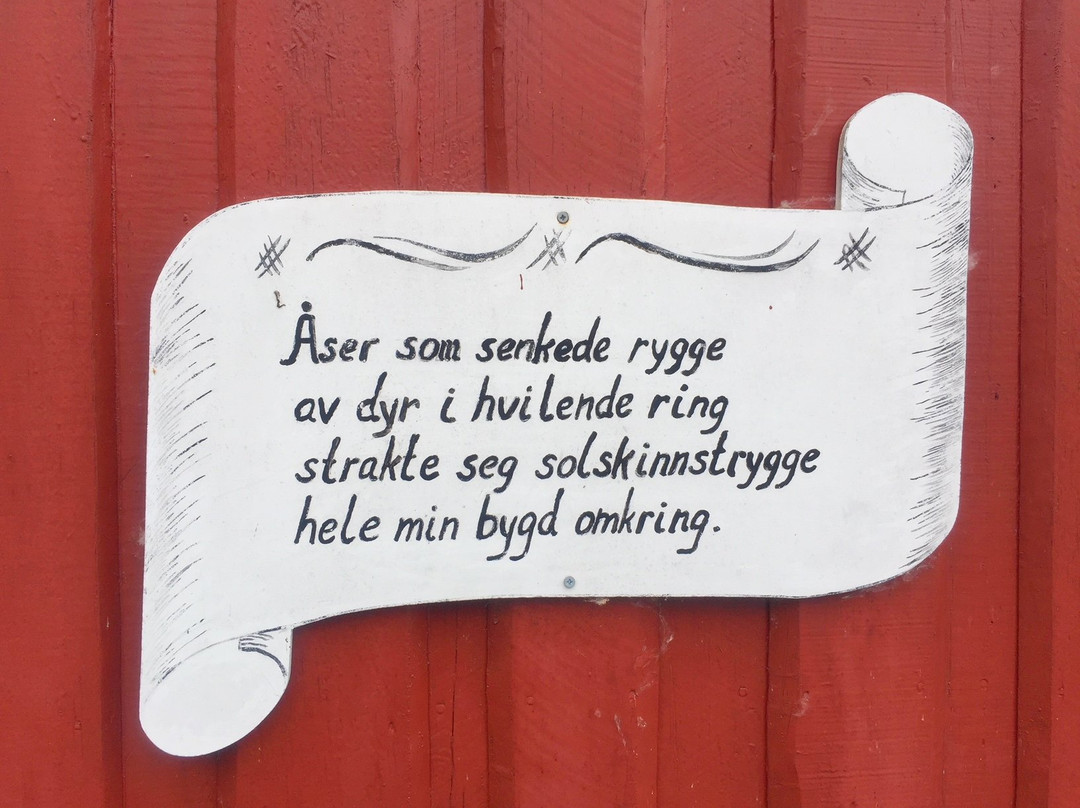 Åser som senkede rygge
av dyr i hvilende ring
strakte seg solskinnstrygge
hele min bygd omkring.